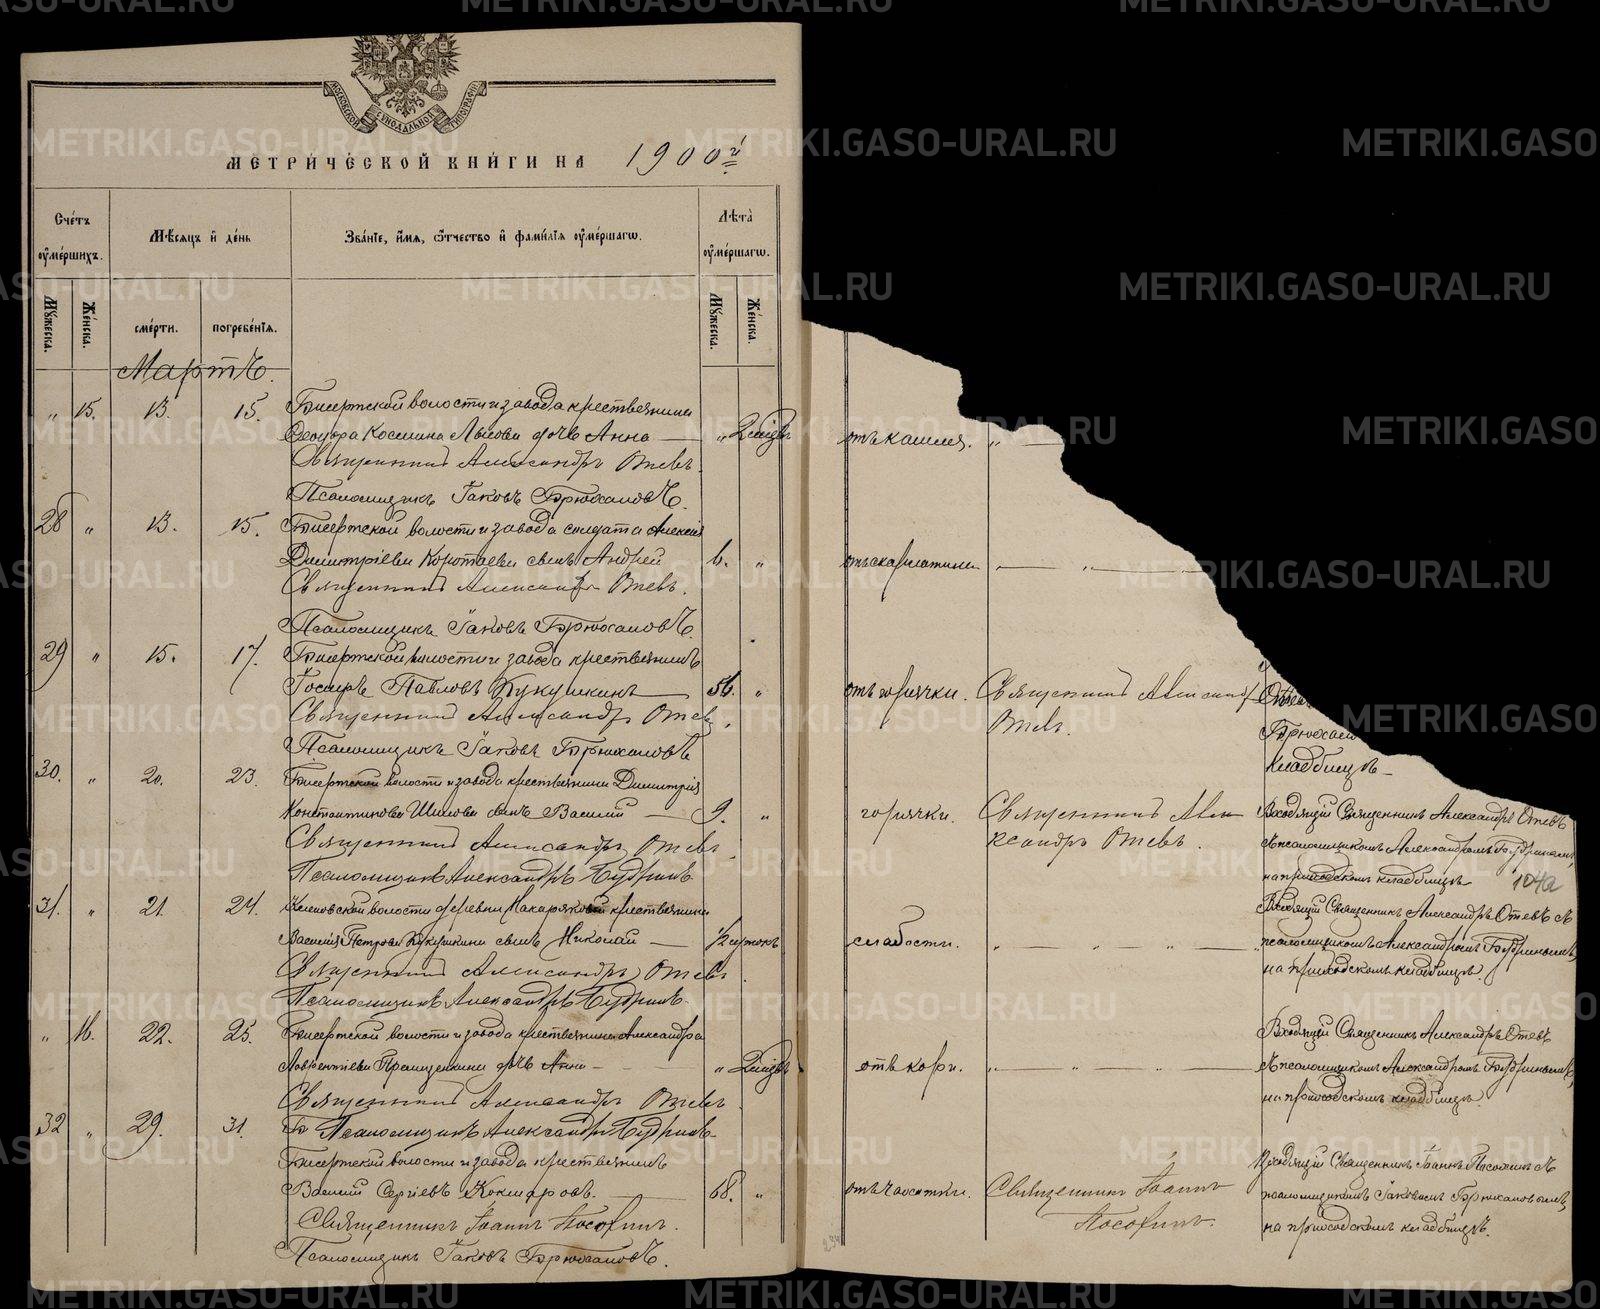 МОСКОВСКОЙ СѴНОДАЛЬНОЙ ТИПОГРАФІИ
МЕТРИЧЕСКОЙ КНИГИ НА 1900й
Счетъ оумершихъ.
Мѣсяцъ и день
Званіе, имя, ѿчество и фамилія оумершагѡ.
Лѣта оумершагѡ.
Мужеска.
Женска.
смерти.
погребенія.
Мужеска.
Женска.
Мартъ.
„ 15. 13. 15. Бисертской волости и завода крестьянина
Ѳеодора Косьмина дочь Анна — „ 2 мѣсяц. отъ кашля. „ —
Священникъ Александръ Отевъ.
Псаломщикъ Іаковъ Брюхановъ.
28 „ 13. 15. Бисертской волости и завода солдата Алексія
Димитріева Коротаева сынъ Андрей 6. „ отъ скарлатины — „ —
Священникъ Александръ Отевъ.
Псаломщикъ Іаковъ Брюхановъ.
29 „ 15. 17. Бисертской волости и завода крестьянинъ
Іосифъ Павловъ Кукушкинъ — 56. „ отъ горячки. Священникъ Александръ Отевъ.
Священникъ Александръ Отевъ.
Псаломщикъ Іаковъ Брюхановъ
Кладбищѣ
30. „ 20. 23. Бисертской волости и завода крестьянина Димитрія
Константинова Шилова сынъ Василій — 9. „ горячки. Священникъ Александръ Отевъ.
Священникъ Александръ Отевъ.
Псаломщикъ Александръ Будринъ
Приходящій Священникъ Александръ Отевъ
съ псаломщикомъ Александромъ Будринымъ,
на приходскомъ кладбищѣ
104а
31. „ 21. 24. Кленовской волости деревни крестьянина
Василія Петрова Кукушкина сынъ Николай — ½ сутокъ слабости. „ — „ — „ —
Священникъ Александръ Отевъ.
Псаломщикъ Александръ Будринъ.
Священникъ Александръ Отевъ съ
псаломщикомъ Александромъ Будринымъ,
на приходскомъ кладбищѣ.
„ 16. 22. 25. Бисертской волости и завода крестьянина Александра
Лаврентіева дочь Анна — „ 2 мѣсяц. отъ кори. — „ — „ —
Священникъ Александръ Отевъ.
Псаломщикъ Александръ Будринъ
Священникъ Александръ Отевъ
съ псаломщикомъ Александромъ Будринымъ,
на приходскомъ кладбищѣ.
32 „ 29. 31. Бисертской волости и завода крестьянинъ
Василій Сергіевъ Кокшаровъ. — 68. „ отъ чахотки. Священникъ Іоаннъ
Священникъ Іоаннъ
Псаломщикъ Іаковъ Брюхановъ.
Священникъ Іоаннъ съ
псаломщикомъ Іаковомъ Брюхановымъ,
на приходскомъ кладбищѣ.
METRIKI.GASO-URAL.RU